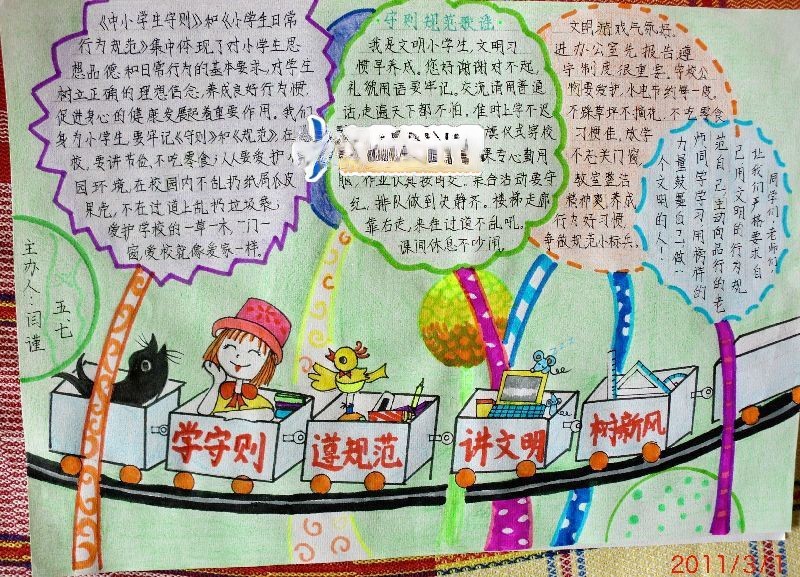 《中小学生守则》和《小学生日常
行为规范》集中体现了对小学生思
想品德和日常行为的基本要求,对学生
树立正确的理想信念,养成良好行为惯,
促进身心的健康发展起着重要作用。我们
身为小学生,要牢记《守则》和《规范》在
校,要讲节俭,不吃零食;人人要爱护
园环境,在校园内不乱扔纸屑
果壳,不在过道上乱扔垃圾袋;
爱护学校的一草一木,一门一
窗,爱校就像爱家一样。
守则规范歌谣
我是文明小学生,文明习
惯早养成。您好谢谢对不起,
礼貌用语要牢记。交流请用普通
话,走遍天下都不怕。准时上学不迟
仪式穿校
课专心勤用
眼,作业认真按时交。集合活动要守
纪,排队做到快静齐。楼梯走廊
靠右走,来在过道不乱吼。
课间休息不吵闹,
文明游戏气氛好。
进办公室先报告遵
守制度很重要。学校公
物要爱护,水电节约每一度。
不踩草坪不摘花,不吃零食
习惯佳。放学
不忘关门窗,
教室整洁
精神爽养成
行为好习惯,
争做规范小标兵。
同学们,老师们,
让我们严格要求自
己用文明的行为规
范自己主动向品行的老
师同学学习用榜样的
力量鼓舞自己做一
个文明的人!
主办人:闫谨
五、七
学守则
遵规范
讲文明
树新风
2011/3/1